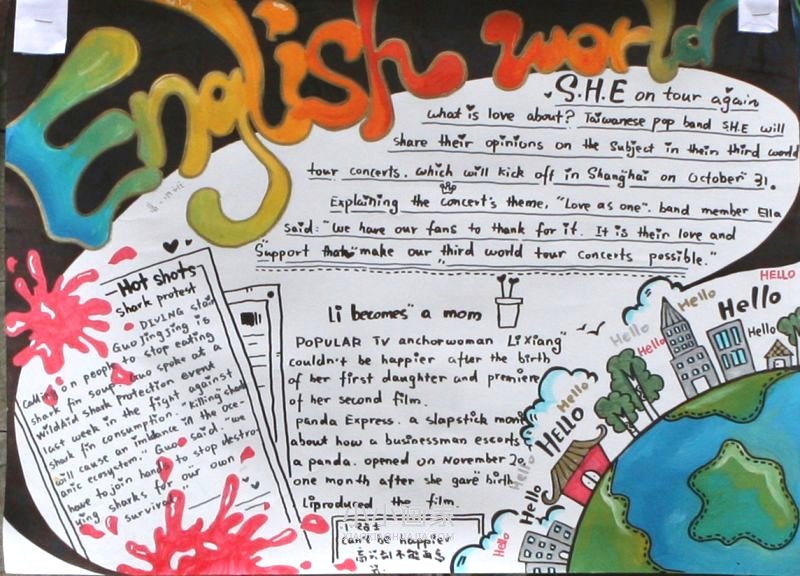 English world
S.H.E on tour again
what is love about? Taiwanese pop band S.H.E will
share their opinions on the subject in their third world
tour concerts. which will kick off in Shanghai on October 31.
Explaining the concert's theme, "Love as one". band member Ella
said: "We have our fans to thank for it. It is their love and
support that make our third world tour concerts possible."
Hot shots
shark protest
DIVING star
Guo Jingjing is
calling on people to stop eating
shark fin soup. Guo spoke at a
wildAid shark Protection event
last week in the fight against
shark fin consumption. "killing shark
will cause an imblance in the oce-
anic ecosystem." Guo said. "we
have to join hands to stop destro-
ying sharks for our own
survival
Li becomes a mom
POPULAR TV anchorwoman Li Xiang
couldn't be happier after the birth
of her first daughter and premiere
of her second film.
Panda Express. a slapstick
about how a businessman escorts
a panda. opened on November 20
one month after she gave birth
Li produced the film
can't be happier
Hello
Hello
Hello
Hello
Hello
Hello
Hello
HELLO
Hello
Hello
Hello